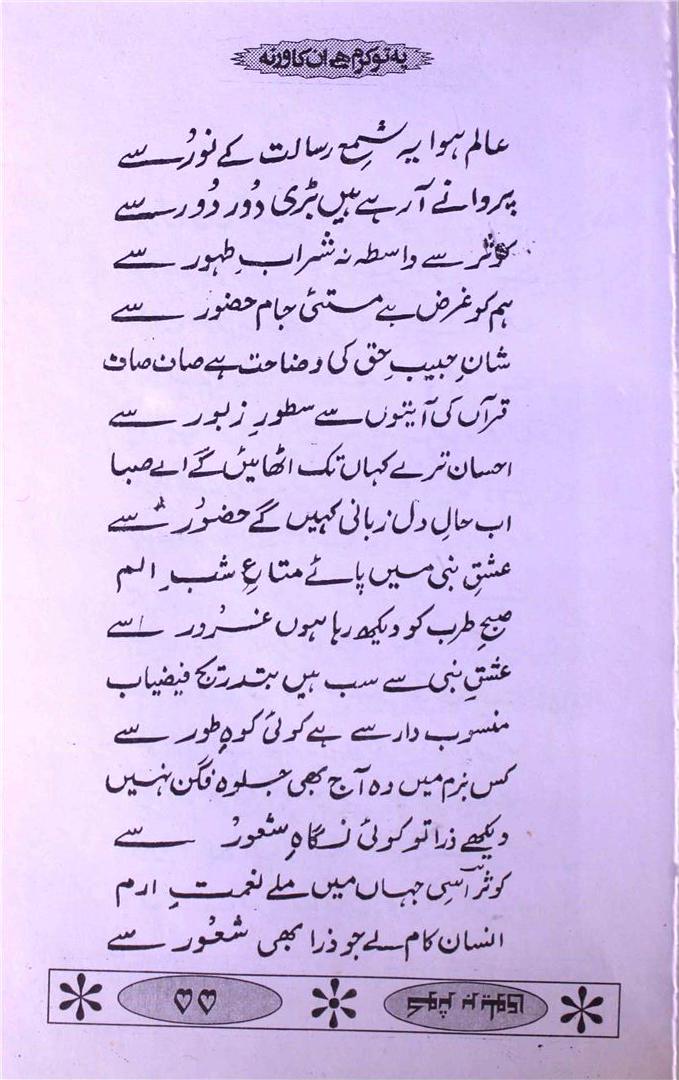 یہ تو کرم ہے ان کا ورنہ
عالم ہوا یہ شمعِ رسالت کے نور سے
پروانے آرہے ہیں بڑی دُور دُور سے
کوثر سے واسطہ نہ شرابِ طہور سے
ہم کو غرض ہے مستیٔ جام حضور سے
شانِ حبیبِ حق کی وضاحت ہے صاف صاف
قرآں کی آیتوں سے سطورِ زبور سے
احسان ترے کہاں تک اٹھائیں گے اے صبا
اب حالِ دل زبانی کہیں گے حضور سے
عشقِ نبی میں پائے متاعِ شبِ الم
صبحِ طرب کو دیکھ رہا ہوں غرور سے
عشقِ نبی سے سب ہیں بتدریج فیضیاب
منسوب دار سے ہے کوئی کوہِ طور سے
کس بزم میں وہ آج بھی جلوہ فگن نہیں
دیکھے ذرا تو کوئی نگاہِ شعور سے
کوثر اسی جہاں میں ملے نعمتِ ارم
انسان کام لے جو ذرا بھی شعور سے